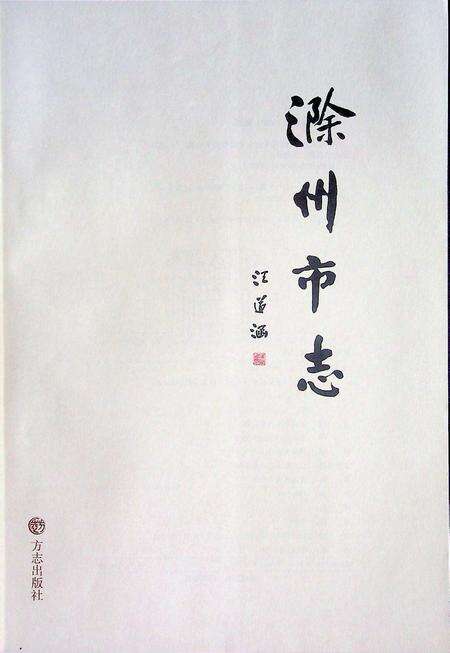 滁州市志
汪道涵
方志出版社